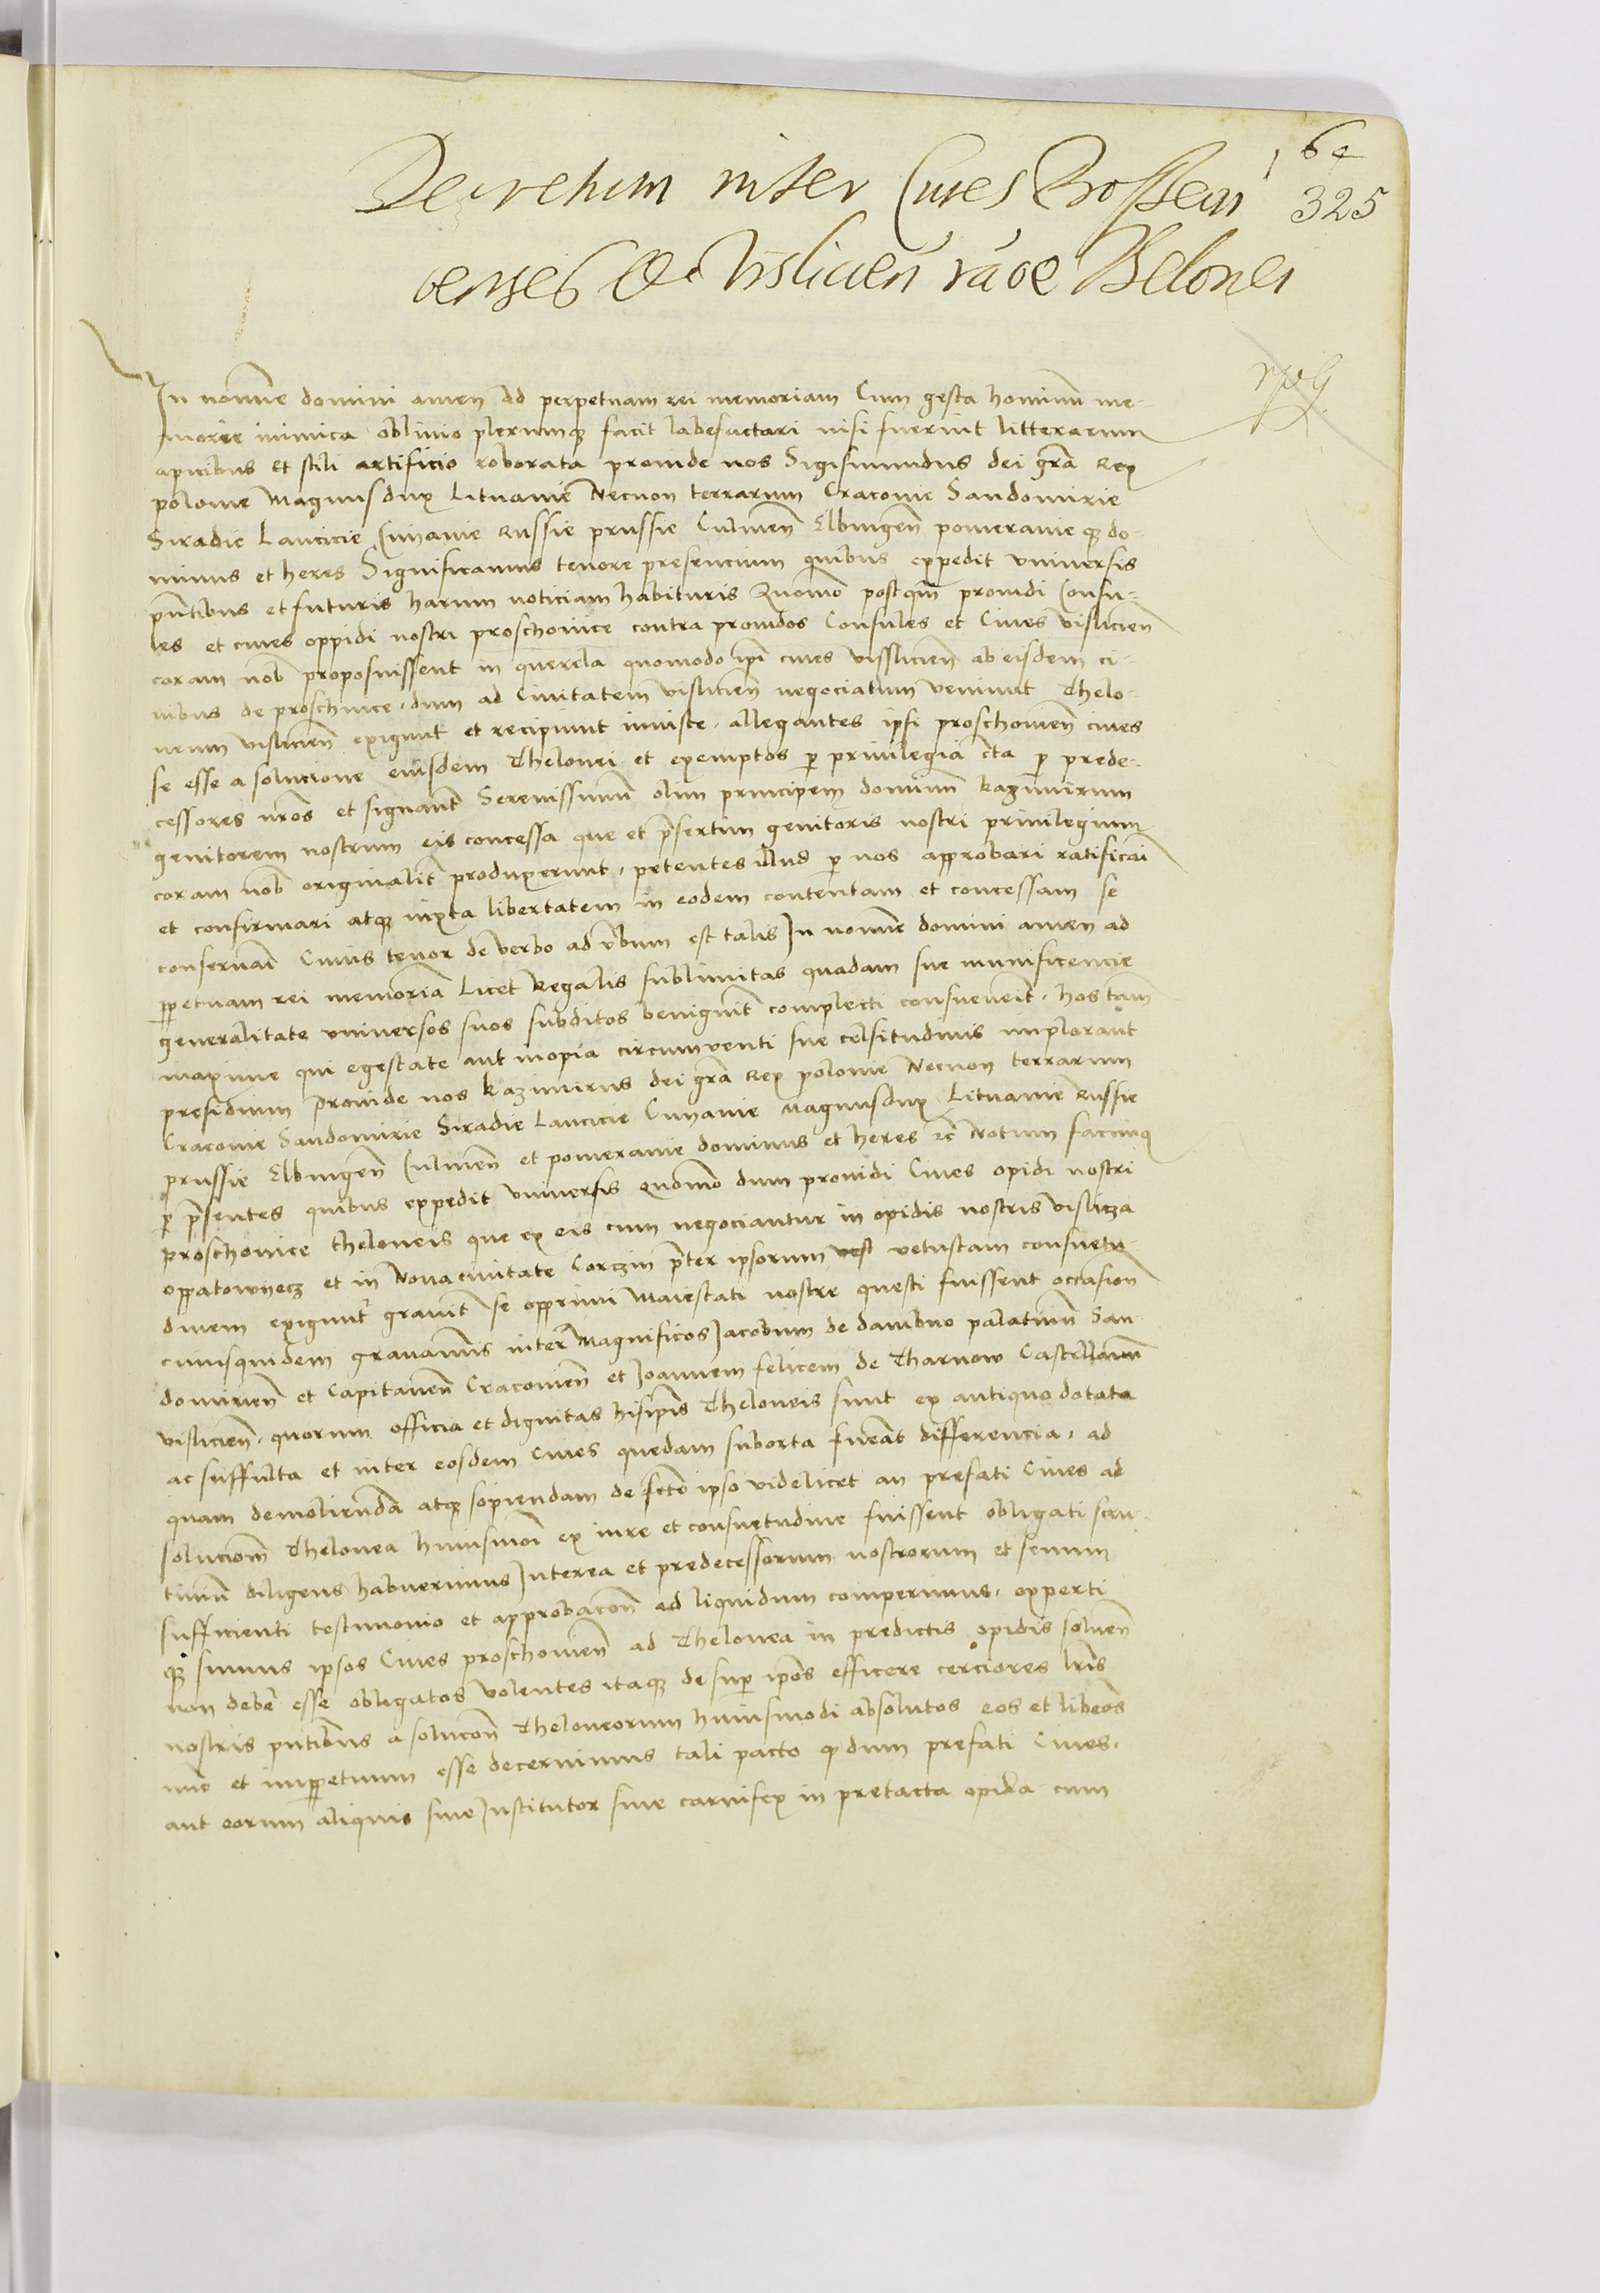 64
325
Decretum inter Cives Prossovi
censes Et Vislicien racoe Thelonei
In nomine domini amen Ad perpetuam rei memoriam Cum gesta hominum me-
morie inimica oblivio plerumq facit labefactari nisi fuerint litterarum
apicibus et stili artificio roborata proinde nos Sigismundus dei gra Rex
polonie Magnus dux Lituanie Necnon terrarum Cracovie Sandomirie
Siradie Lancicie Cuiavie Russie prussie Culmen Elbingen pomeranie q do-
minus et heres Significamus tenore presencium quibus expedit universis
pntibus et futuris harum noticiam habituris Quomo postqm providi Consu-
les et cives oppidi nostri proschovice contra providos Consules et Cives vislicien
coram nob proposuissent in querela quomodo ipi cives visslicien ab eisdem ci-
vibus de proschvice dum ad Civitatem vislicien negociatum veniunt Thelo-
neum vislicien exigunt et recipiunt iniuste allegantes ipsi proschovien cives
se esse a solucione eiusdem Thelonei et exemptos p privilegia cta p prede-
cessores nros et signant Serenissimum olim principem dominum kazimirum
genitorem nostrum eis concessa que et psertim genitoris nostri privilegium
coram nob originalit produxerunt, petentes illud p nos approbari ratificai
et confirmari atq iuxta libertatem in eodem contentam et concessam se
conservari Cuius tenor de verbo ad vbum est talis In nomine domini amen ad
ppetuam rei memoria Licet Regalis sublimitas quadam sue munificencie
generalitate universos suos subditos benignit complecti consueverit, hos tam
maxime qui egestate aut inopia circumventi sue celsitudinis implorant
presidium proinde nos kazimirus dei gra Rex polonie Necnon terrarum
Cracovie Sandomirie Siradie Lancicie Cuiavie Magnusdux Lituanie Russie
prussie Elbingen Culmen et pomeranie dominus et heres rc Notum facimq
p psentes quibus expedit universis Quomo dum providi Cives opidi nostri
proschovice theloneis que ex eis cum negociantur in opidis nostris vislicza
oppatowyecz et in Nova civitate Corczin pter ipsorum vest vetustam consuetu-
dinem exigunt gravit se opprimi Maiestati nostre questi fuissent occasion
cuiusquidem gravaminis inter Magnificos Jacobum de dambno palatinum San
domirien et Capitaneum Cracovien et Joannem felicem de Tharnow Castellanum
vislicien, quorum officia et dignitas hisipis Theloneis sunt ex antiquo dotata
ac suffulta et inter eosdem Cives quedam suborta fuerat differencia, ad
quam demoliendam atq sopiendam de fcto ipso videlicet an prefati Cives ad
solucionem Thelonea huiusmoi ex iure et consuetudine fuissent obligati scru-
tinium diligens habuerimus Interea et predecessorum nostrorum et senum
sufficienti testimonio et approbacon ad liquidum comperimus, experti
q sumus ipsos Cives proschovien ad Thelonea in predictis opidis solven
non debere esse obligatos volentes itaq desup ipos efficere cerciores lris
nostris pntibus a solucon Theloneorum huiusmodi absolutos eos et liberos
nuc et imppetuum esse decernimus tali pacto q dum prefati Cives,
aut eorum aliquis sive Institutor sive carnifex in pretacta opida cum